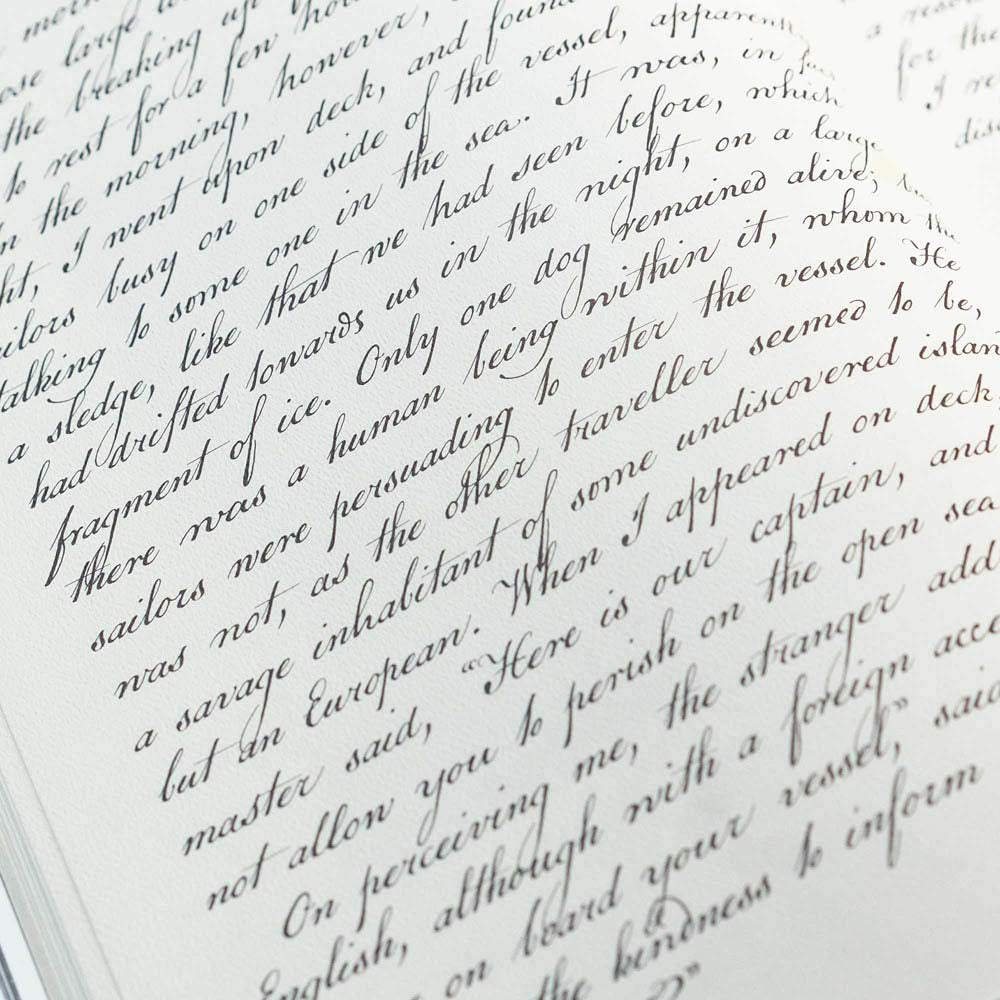 the breaking up
to rest for a few
the morning, however,
I went upon deck, and found
busy on one side of the vessel,
talking to some one in the sea. It was, in
a sledge, like that we had seen before, which
had drifted towards us in the night, on a large
fragment of ice. Only one dog remained alive;
there was a human being within it, whom the
sailors were persuading to enter the vessel. He
was not, as the other traveller seemed to be,
a savage inhabitant of some undiscovered
but an European. When I appeared on deck,
master said, “Here is our captain, and
not allow you to perish on the open sea
On perceiving me, the stranger
English, although with a foreign
on board your vessel,” said
the kindness to inform
a
for the
I